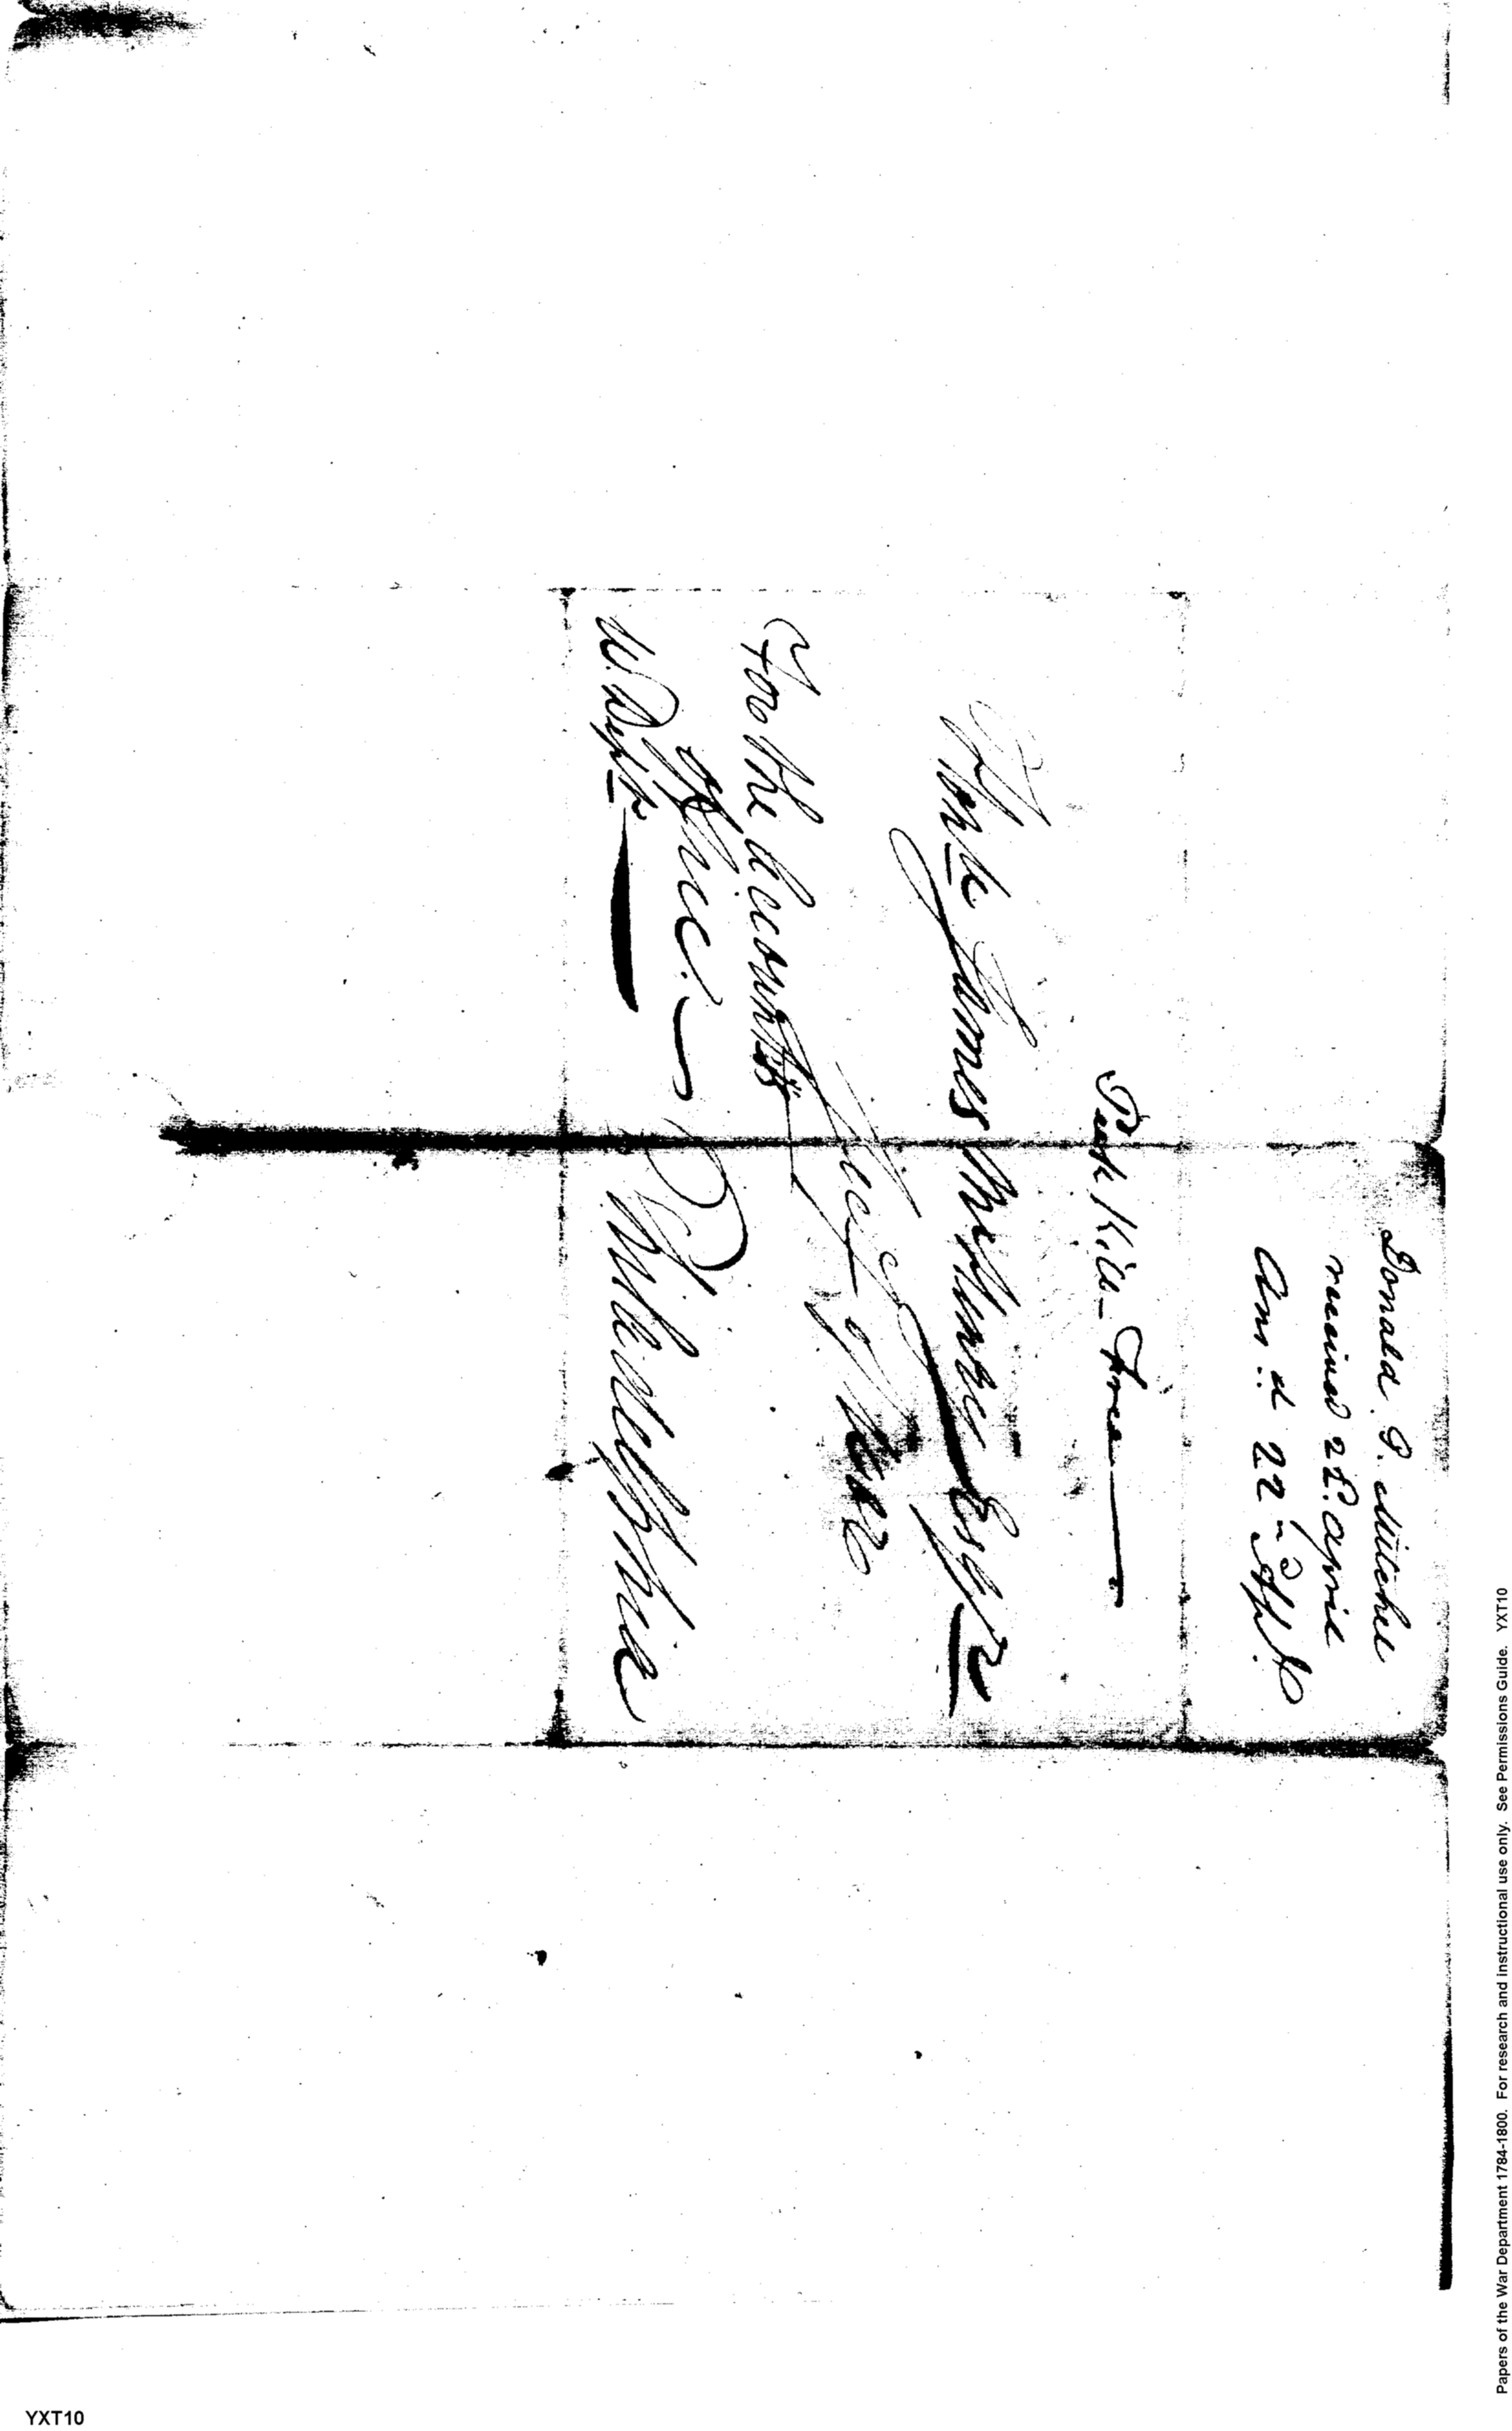 Donald G. Mitchel
received 22d. April
Ans.d 22d Apl
Peeks Kill - Free
Honble James McHenry Esqre
Secy of War
For the Accountts
Office.
W. Dept.
Philadelphia
Papers of the War Department 1784-1800. For research and instructional use only. See Permissions Guide. YXT10
YXT10